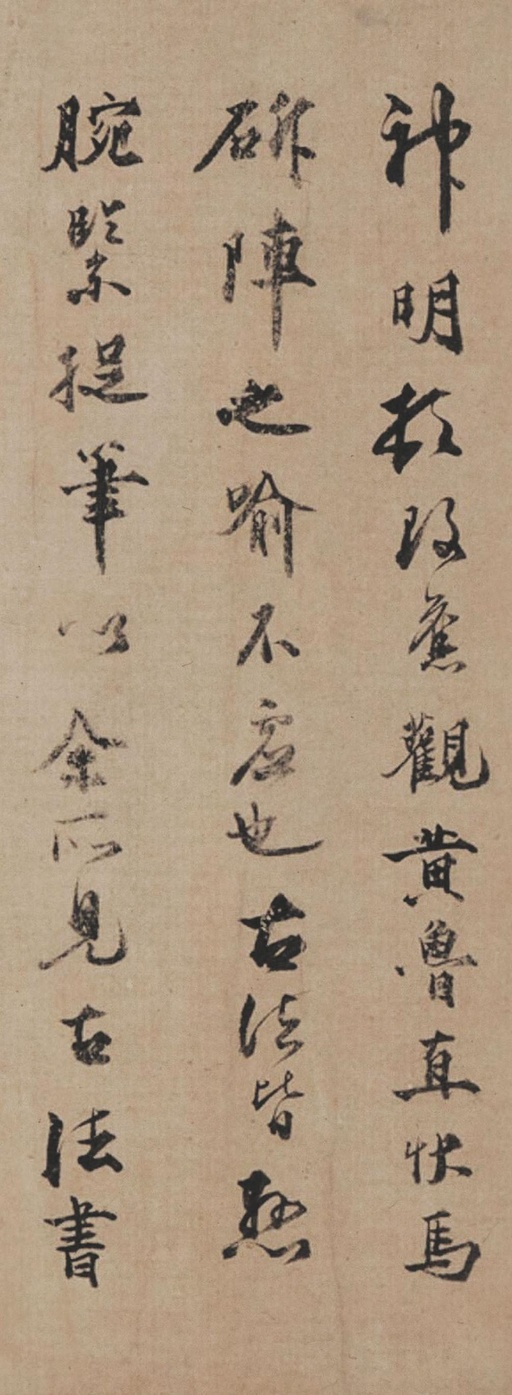 神明改舊觀黃魯直快馬
斫陣之喻不虛也古法皆懸
腕緊捉筆以余所見古法書